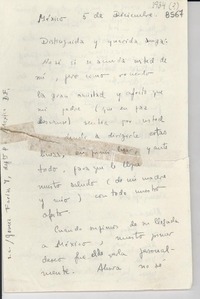 1954 (?)
8567
México 5 de Diciembre
Distinguida y querida amiga:
No sé si se acuerda usted de
mí, pero como recuerdo
la gran amistad y afecto que
mi padre (que en paz
descanse) sentía por usted
a dirigirle estas
líneas, en primer lugar y ante
todo, para que le llegue
nuestro saludo (de mi madre
y mío) con todo nuestro
afecto.
Cuando supimos de su llegada
a México, nuestro primer
deseo fue verla personal-
mente. Ahora no sé
México D.F.